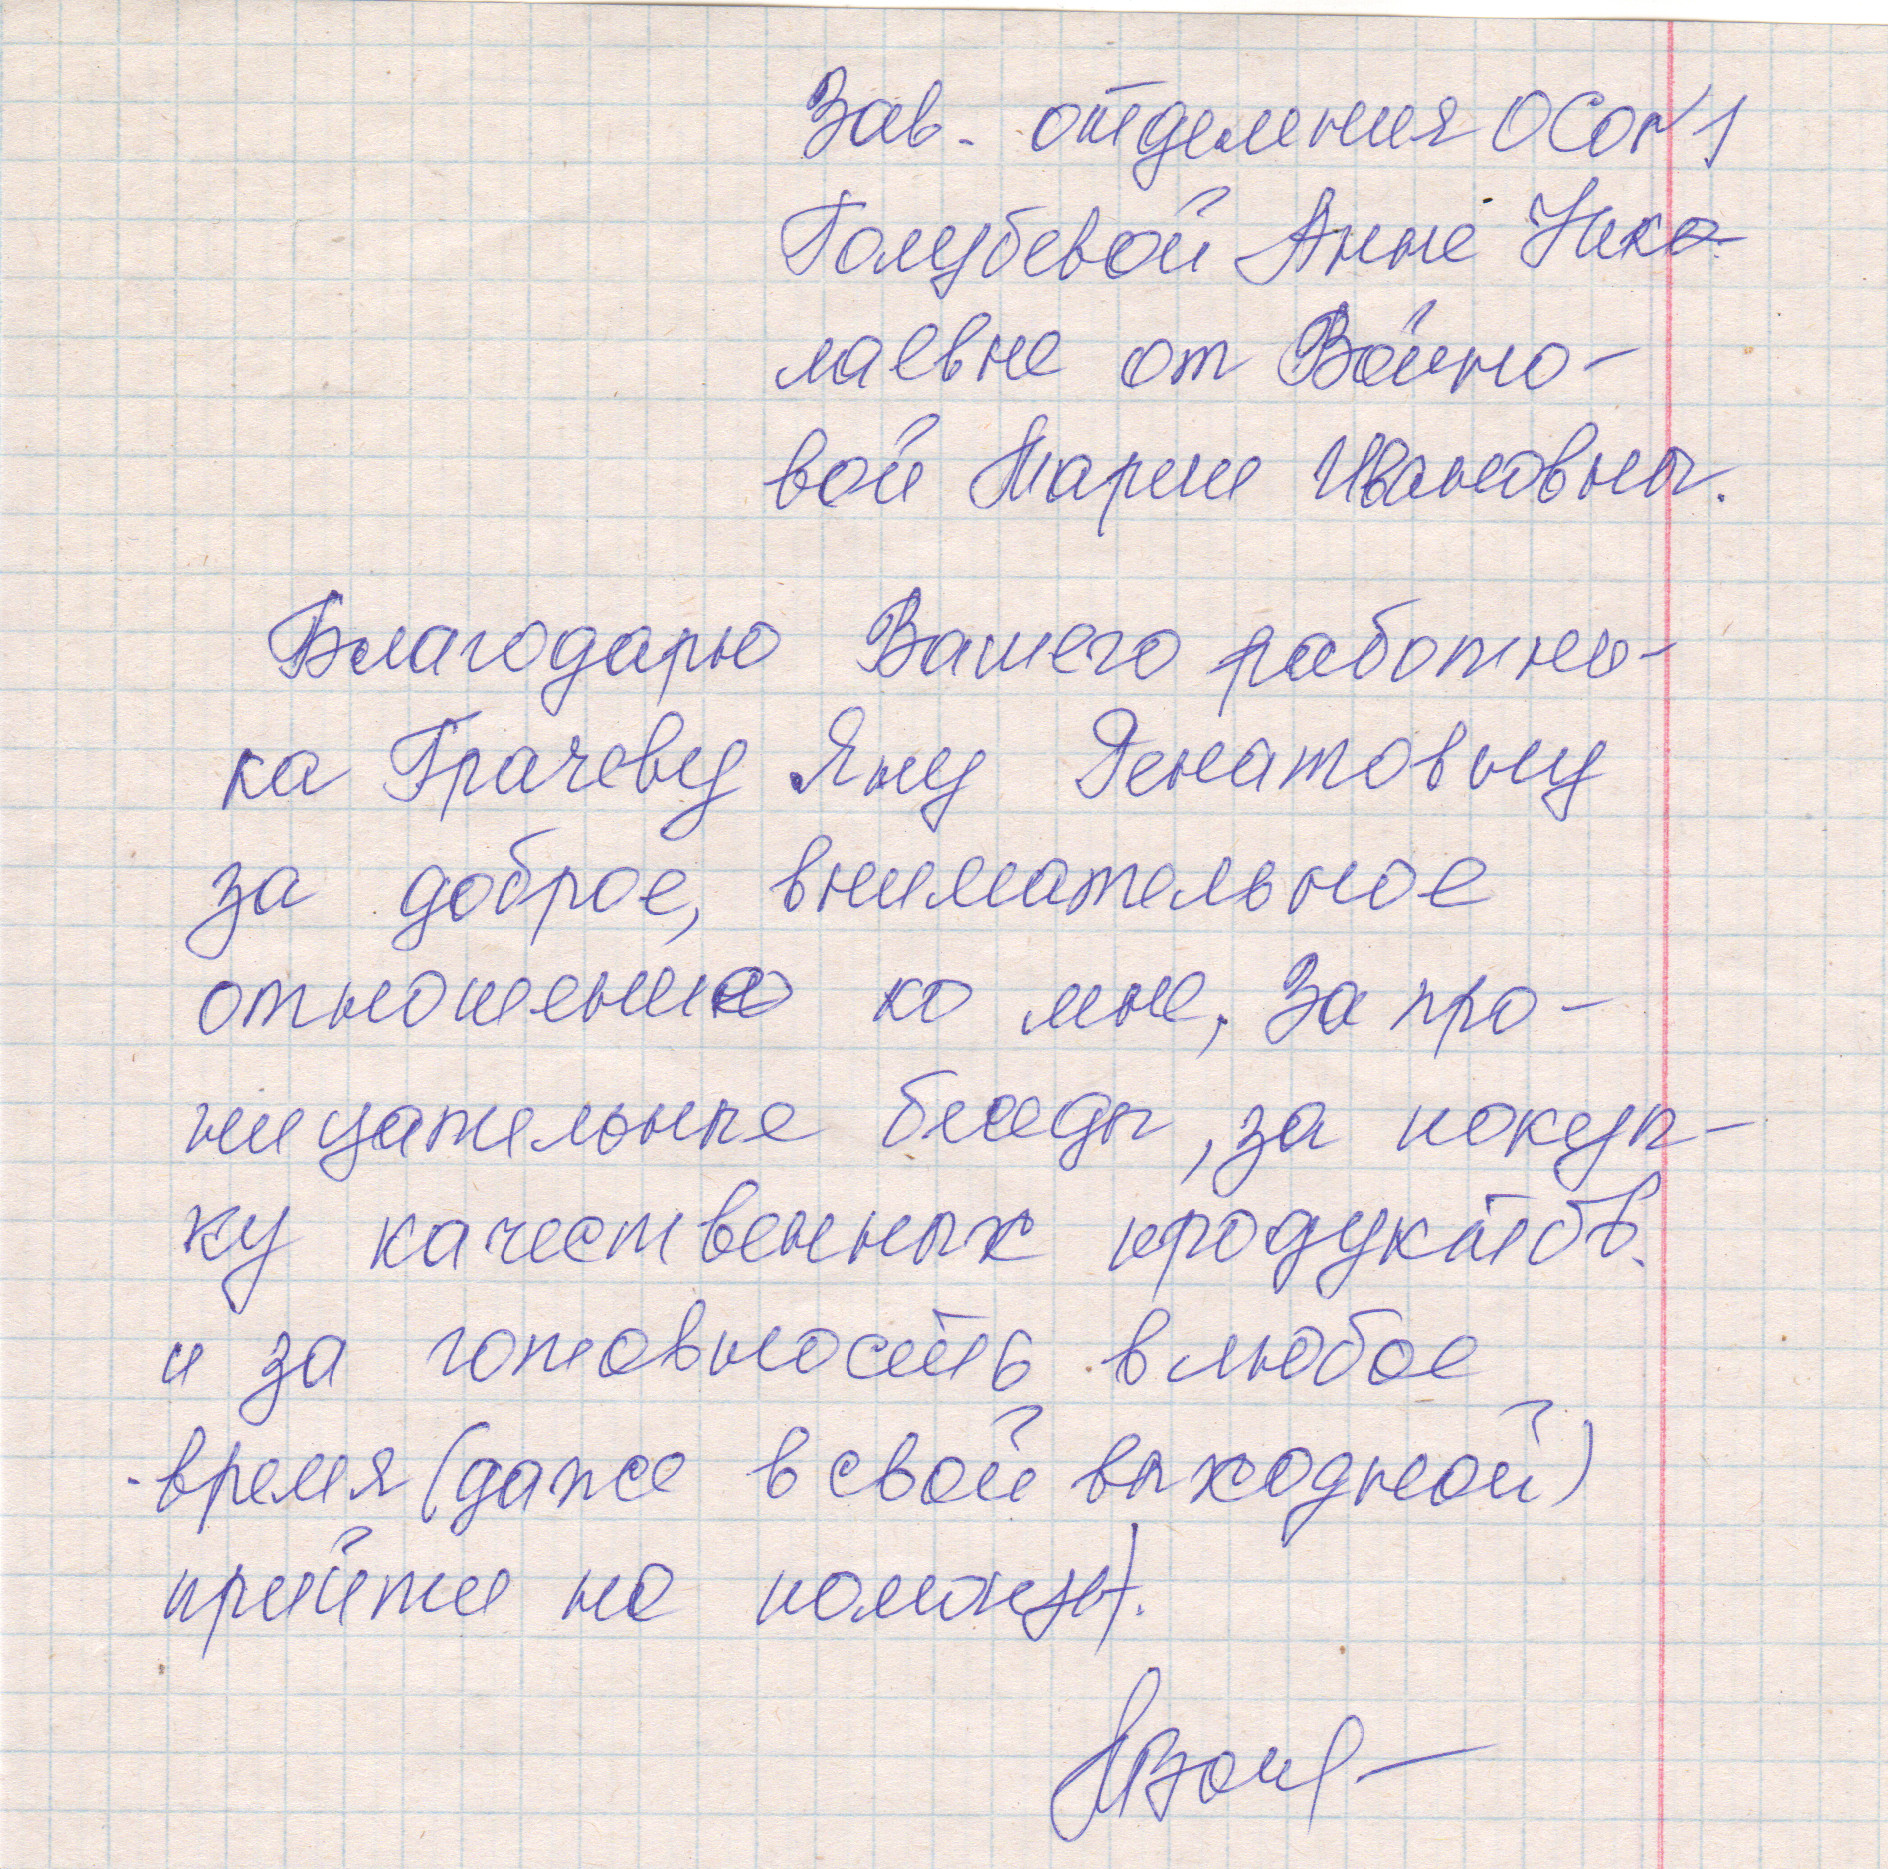 Зав. отделения ОСО №1
Голубевой Анне Нико-
лаевне от Войно-
вой Марии Ивановны.
Благодарю Вашего работни-
ка Грачеву Яну Ренатовну
за доброе, внимательное
отношение ко мне, за про-
ницательные беседы, за покуп-
ку качественных продуктов.
и за готовность в любое
время (даже в свой выходной)
прийти на помощь).